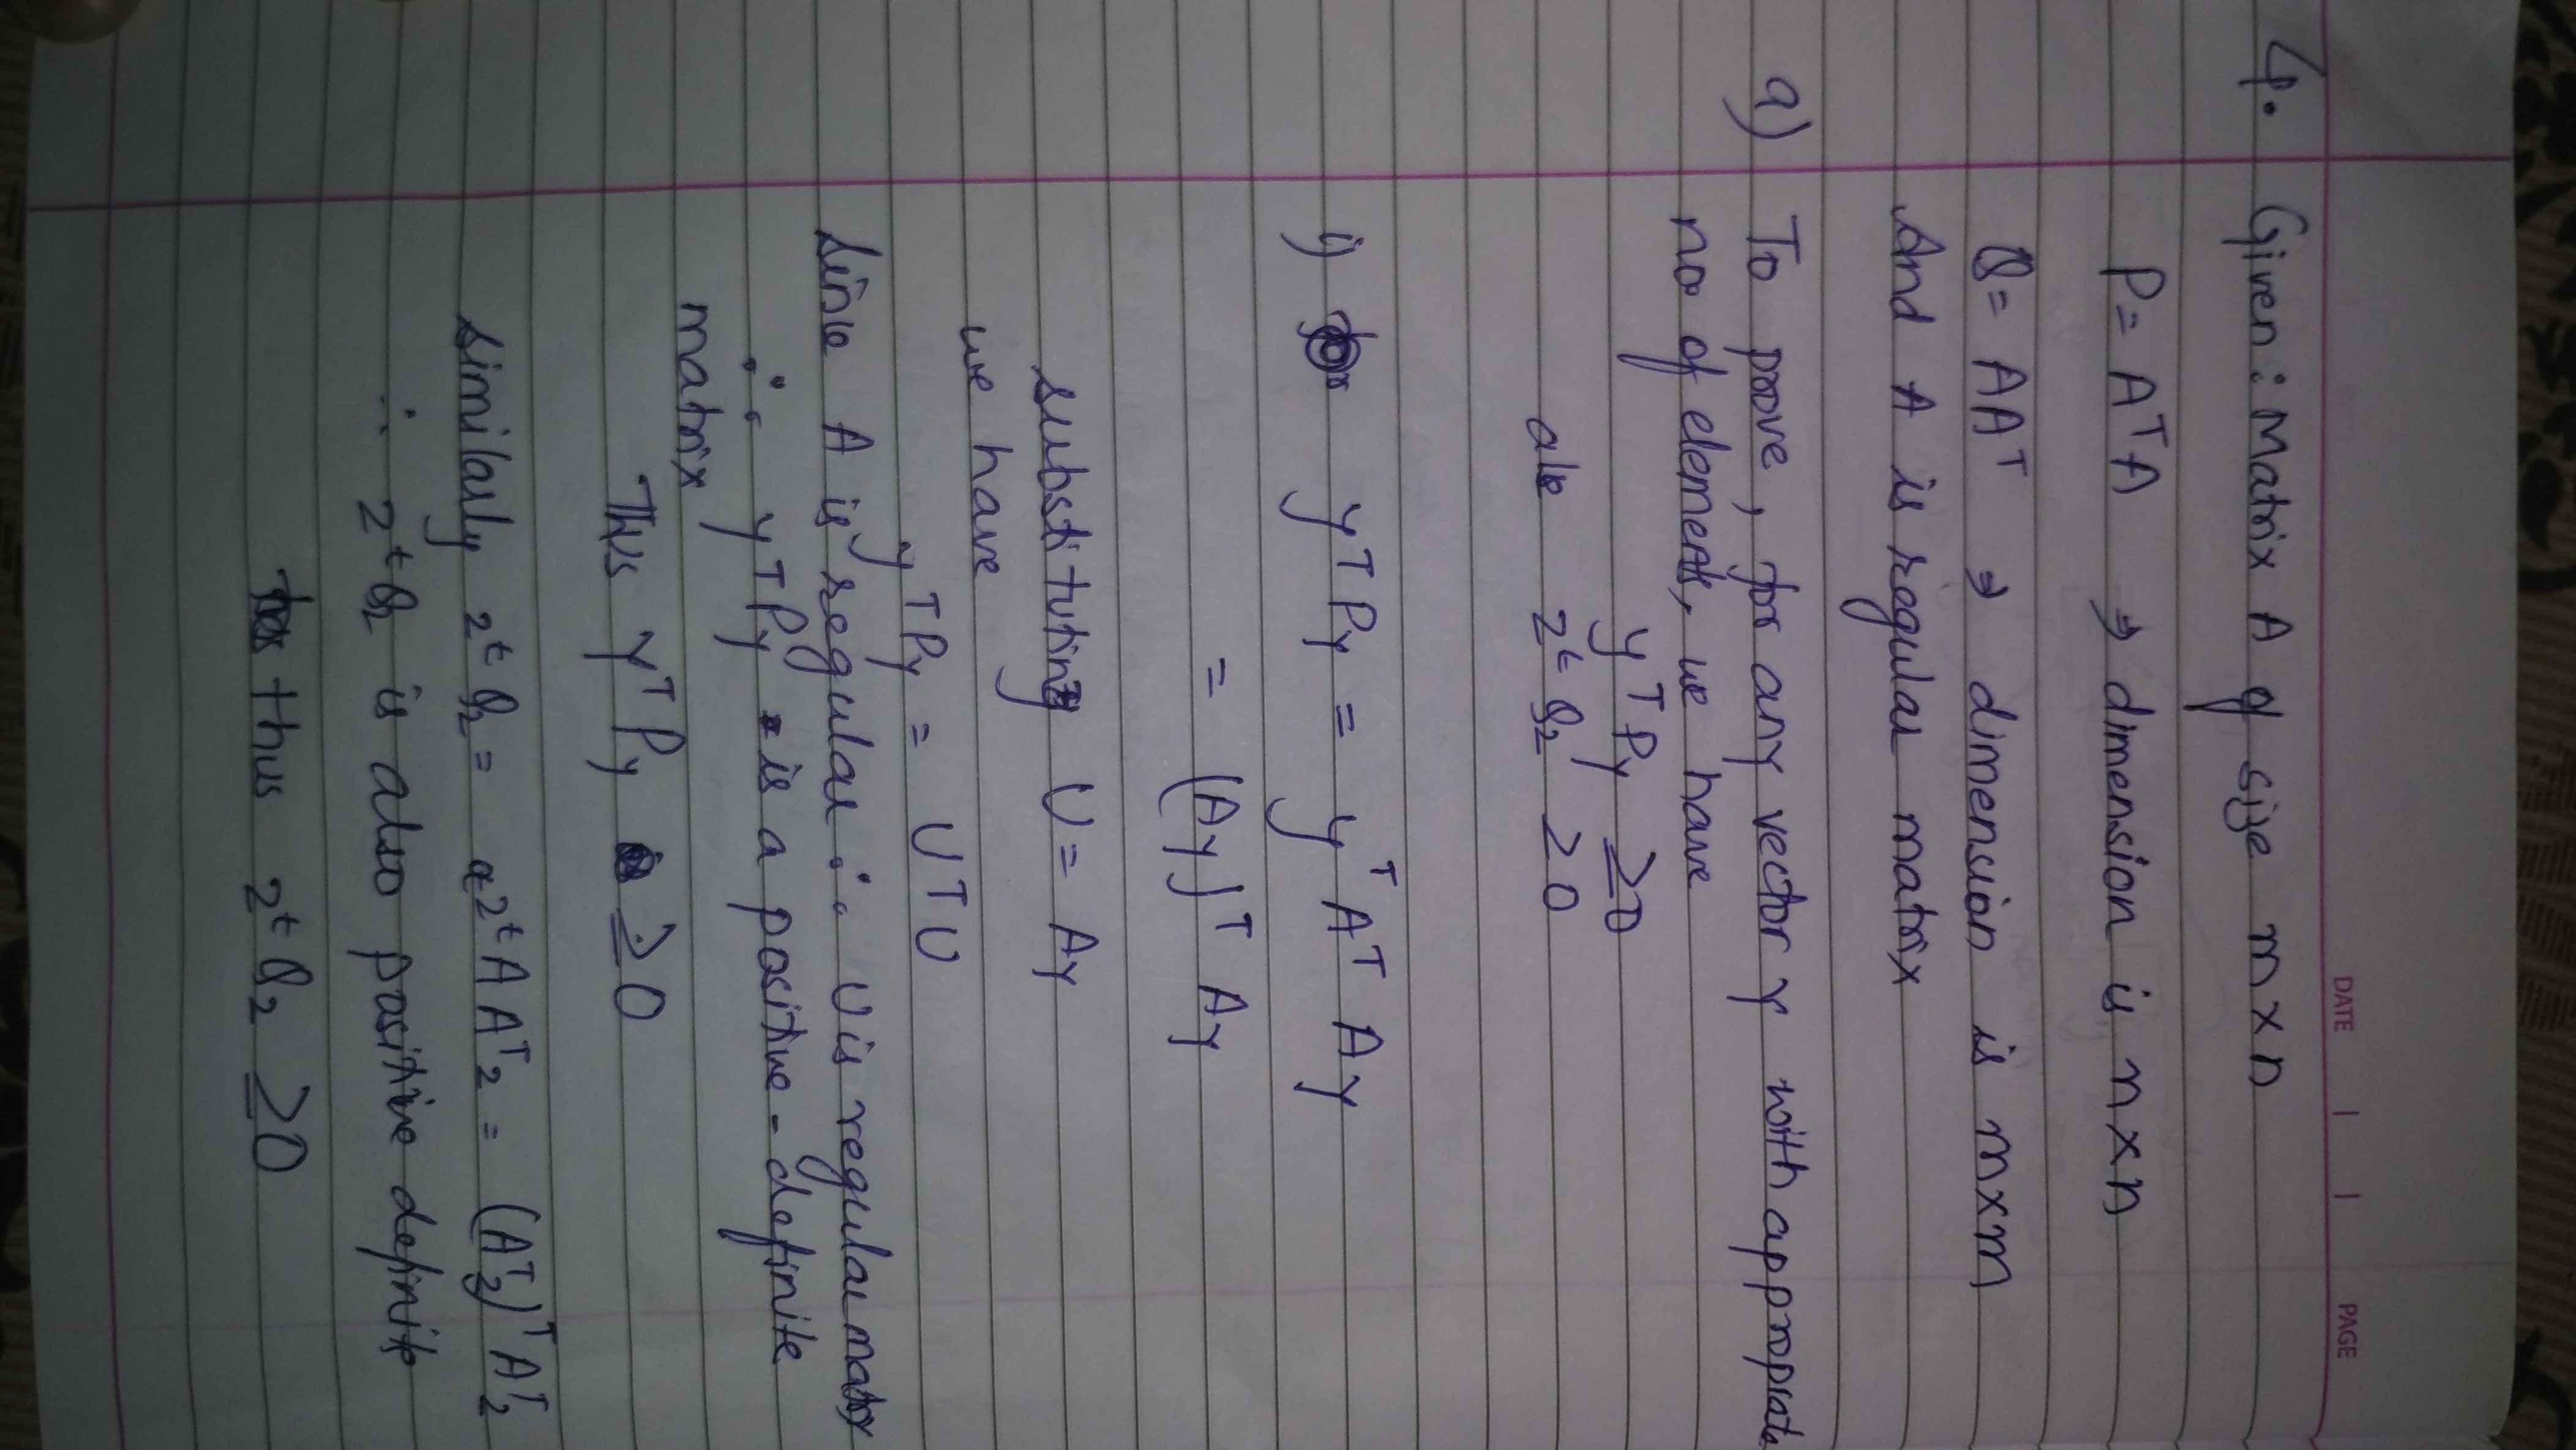 DATE | | PAGE
4. Given : Matrix A of size m x n
P = A^T A ⇒ dimension is n x n
Q = AA^T ⇒ dimension is m x m
And A is regular matrix
a) To prove, for any vector y with appropriate
no of elements, we have
y^T Py ≥ 0
also z^t Qz ≥ 0
i) y^T Py = y^T A^T Ay
= (Ay)^T Ay
substituting U = Ay
we have
y^T Py = U^T U
Since A is regular ∴ U is regular matrix
∴ y^T Py is a positive-definite
matrix
Thus y^T Py ≥ 0
Similarly z^t Qz = z^t AA^T z = (A^T z)^T A^T z
∴ z^t Qz is also positive definite
thus z^t Qz ≥ 0